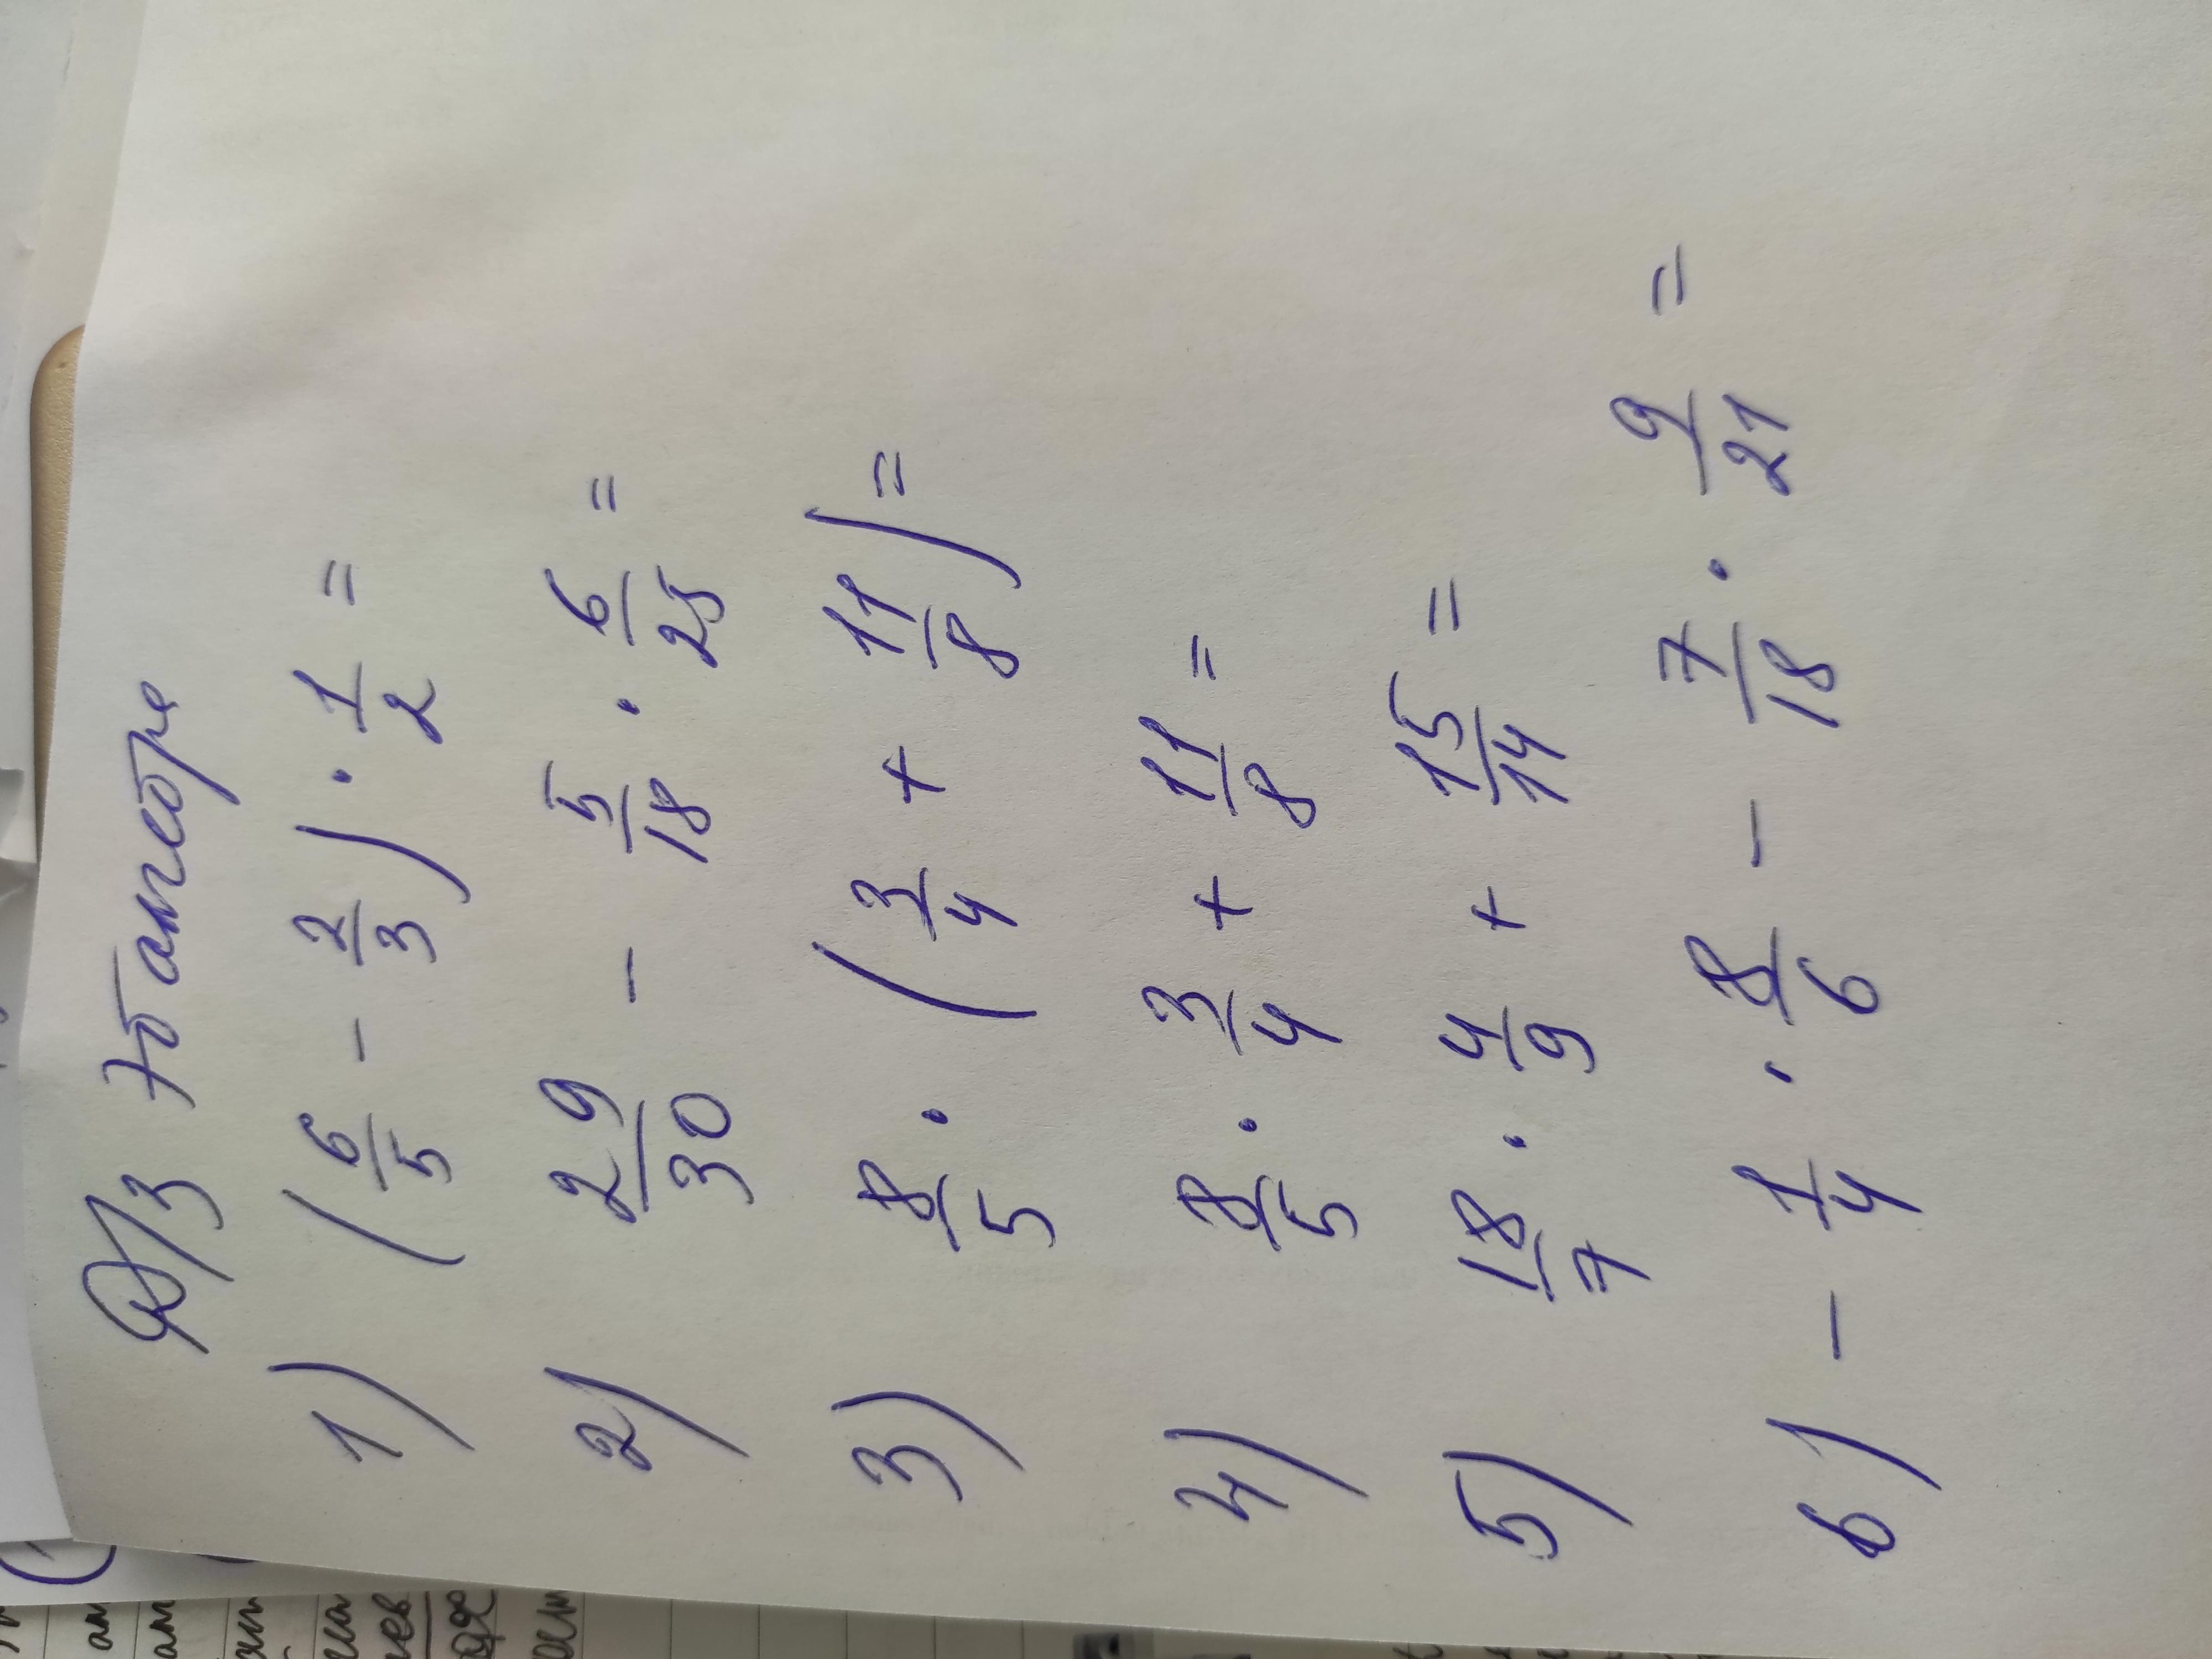 Д/З
1) (6/5 - 2/3) · 1/2 =
2) 29/30 - 5/18 · 6/25 =
3) 8/5 · (3/4 + 11/8) =
4) 8/5 · 3/4 + 11/8 =
5) 18/7 · 4/9 + 15/14 =
6) - 1/4 · 8/6 - 7/18 · 9/21 =